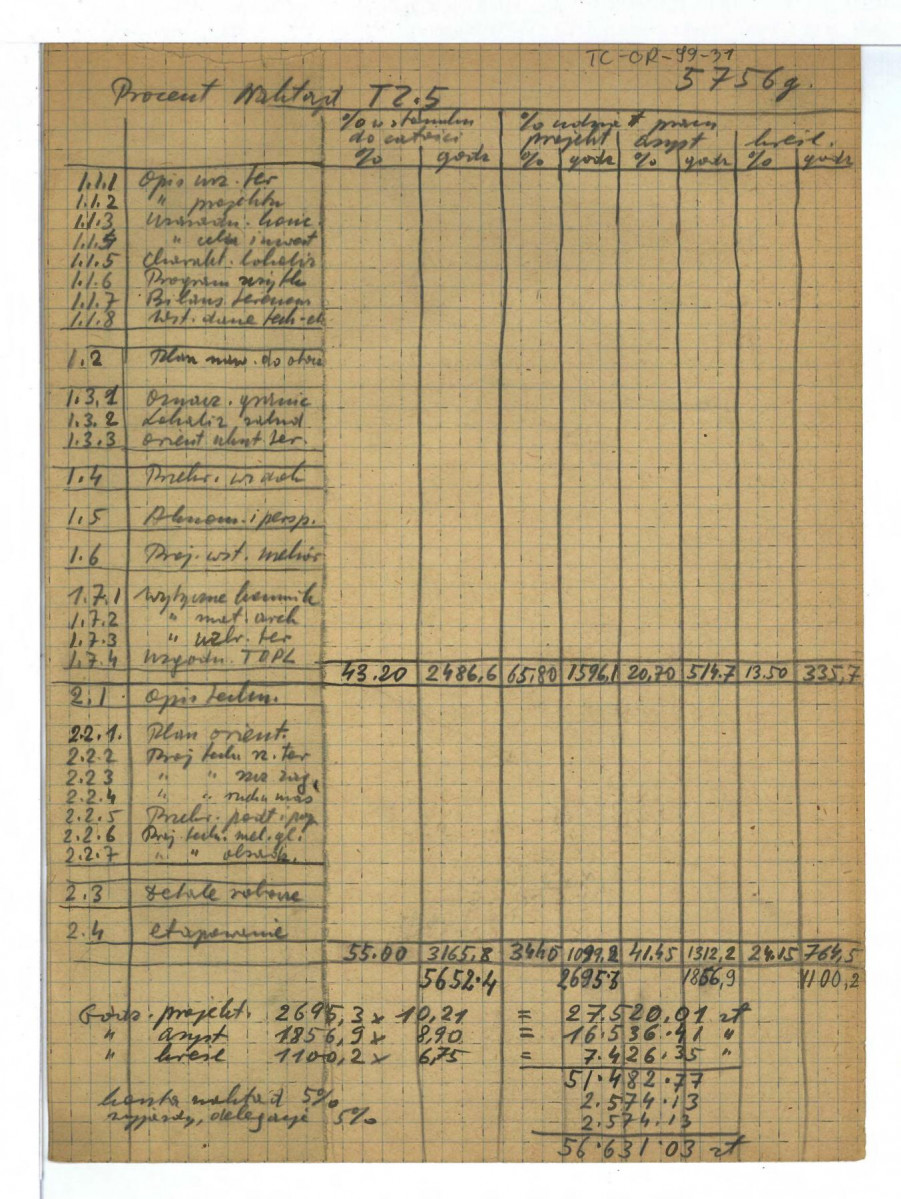 TC-OR-99-31
5756 g.
Procent Nakład TZ.5
% w stosunku % udział pracy
do całości projekt asyst kreśl.
% godz % godz % godz % godz
1.1.1 Opis urz. ter
1.1.2 " projektu
1.1.3 Uzasadn. konc.
1.1.4 " celu inwest
1.1.5 Charakt. lokaliz
1.1.6 Program użytk
1.1.7 Bilans terenow
1.1.8 Wst. dane tech-ek
1.2 Plan naw. do otocz
1.3.1 Oznacz. granic
1.3.2 Lokaliz zabud
1.3.3 Orient ukszt ter.
1.4 Przekr. widok
1.5 Aksonom. i persp.
1.6 Proj. wst. melior
1.7.1 Wytyczne komunik
1.7.2 " mat. arch
1.7.3 " uzbr. ter
1.7.4 Uzgodn. TOPL 43.20 2486,6 65,80 1596,1 20,70 514.7 13.50 335,7
2.1 Opis techn.
2.2.1. Plan orient.
2.2.2 Proj techn u. ter
2.2.3 " "
2.2.4 " " ruchu mas
2.2.5 Przekr. podł i pop
2.2.6 Proj tech. mel. gl.
2.2.7 " " obsad.
2.3 Detale robocze
2.4 Etapowanie
55.00 3165,8 34.40 1099,2 41.45 1312,2 24.15 764,5
5652.4 2695,3 1856,9 1100,2
Godz. projekt. 2695,3 x 10,21 = 27.520,01 zł
" asyst 1856,9 x 8,90 = 16.536.41 "
" kreśl 1100,2 x 6,75 = 7.426.35 "
51.482.77
koszta nakład 5% 2.574.13
wyjazdy, delegacje 5% 2.574.13
56.631.03 zł